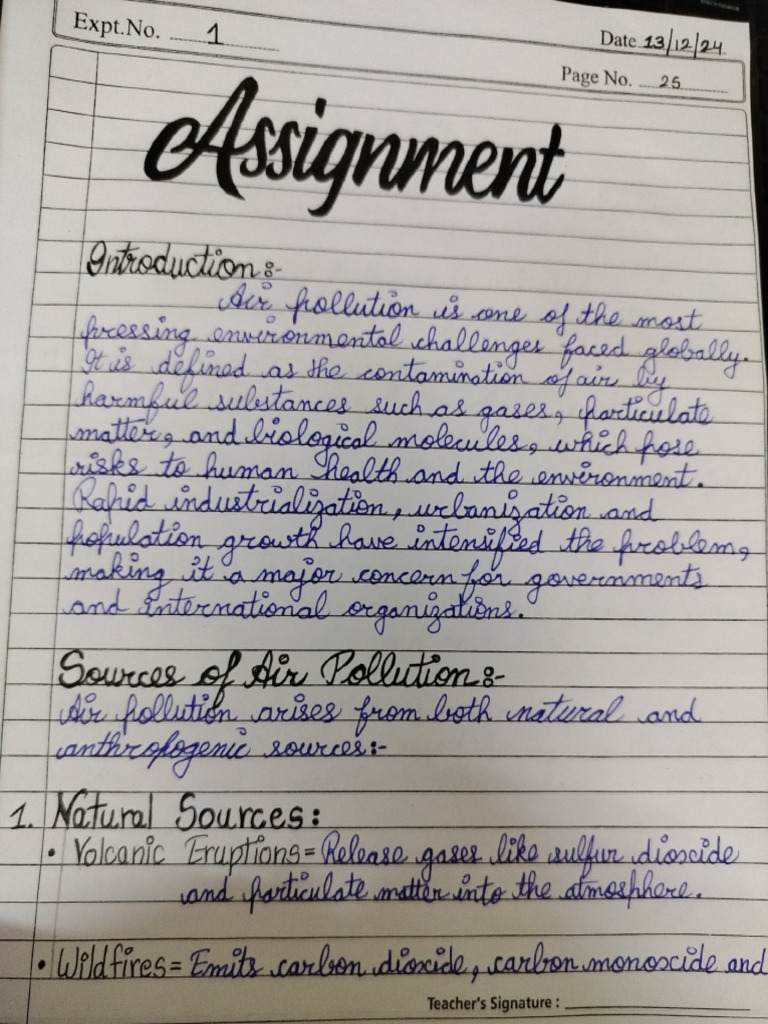 Expt.No. 1
Date 13/12/24
Page No. 25
Assignment
Introduction:-
Air pollution is one of the most
pressing environmental challenges faced globally.
It is defined as the contamination of air by
harmful substances such as gases, particulate
matter, and biological molecules, which pose
risks to human health and the environment.
Rapid industrialization, urbanization and
population growth have intensified the problem,
making it a major concern for governments
and international organizations.
Sources of Air Pollution:-
Air pollution arises from both natural and
anthropogenic sources:-
1. Natural Sources:
• Volcanic Eruptions = Release gases like sulfur dioxide
and particulate matter into the atmosphere.
• Wildfires = Emits carbon dioxide, carbon monoxide and
Teacher's Signature :